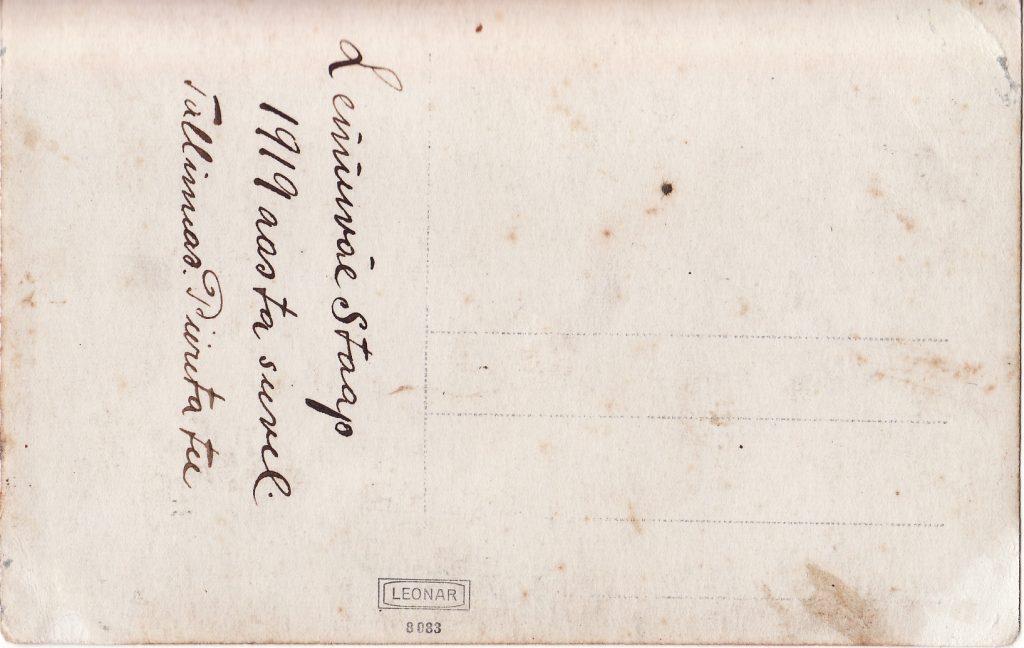 Lennuväe Staap
1919 aasta suvel.
Tallinnas. Pirita tee
LEONAR
8083